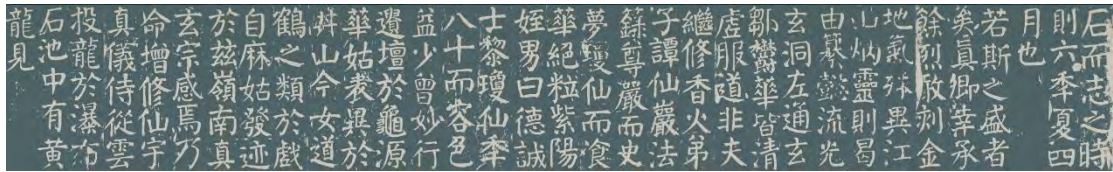 石而志之時
則六秊夏四
月也
若斯之盛者
矣真卿幸承
餘烈敢刻金
地氣殊異江
山炳靈則曷
由纂懿流光
玄洞左通玄
鄒欝華皆清
虛服道非夫
繼修香火弟
子譚仙巖法
籙尊嚴而史
夢瓊仙而飡
華絕粒紫陽
姪男曰德誠
士黎瓊仙秊
八十而容色
益少曾妙行
遺壇於龜源
華姑表異於
井山今女道
鶴之類於戲
自麻姑發迹
於茲嶺南真
玄宗感焉乃
命增修仙宇
真儀侍從雲
投龍於瀑布
石池中有黃
龍見